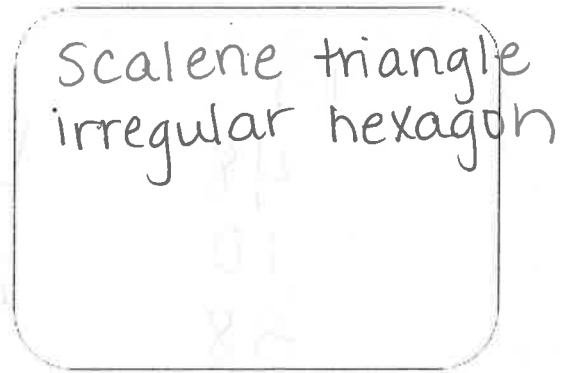 scalene triangle
irregular hexagon